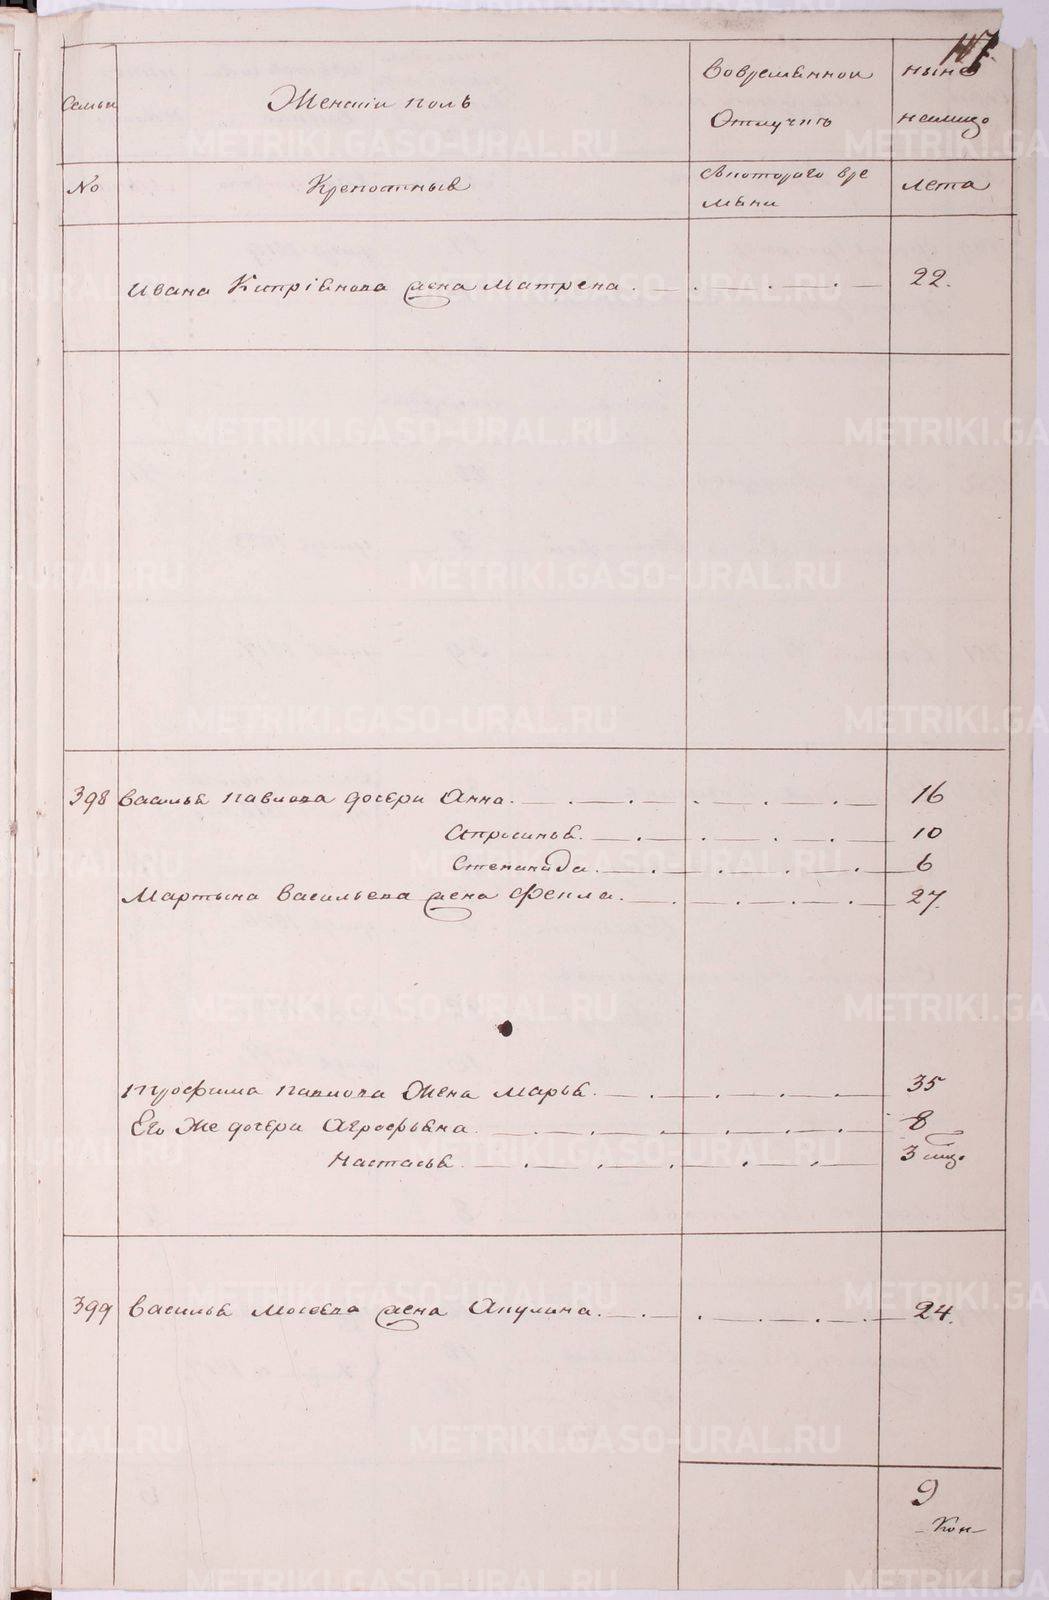 147.
Семьи
Женский полъ
Вовременной
Отлучкъ
ныне
налицо
No
Крепостныѣ
Скотораго вре
мѣни
Лета
Ивана Кипріѣнова жена Матрена. 22.
398 Василья Павлова дочери Анна. 16
Апросинья. 10
Степанида. 6
Мартына Васильева жена Фекла. 27.
Трофима Павлова Жена Марья. 35
Его Же дочери Агрофѣна. 8
Настасья. 3 мѣс.
399 Василья Мосеева жена Акулина. 24.
9
Кон
METRIKI.GASO-URAL.RU